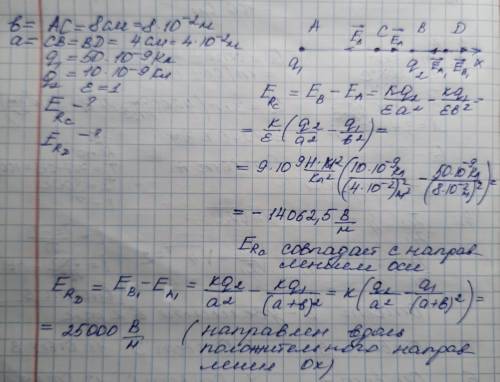 в= AC = 8см = 8·10⁻²м
a= CB = BD = 4см = 4·10⁻²м
q₁ = 50·10⁻⁹Кл
q₂ = 10·10⁻⁹Кл
ε=1
E_Rc -?
E_R𝒟 -?
A E⃗_B C E⃗_A B D
q₁ q₂ E⃗_A₁ E⃗_B₁ X
E_Rc = E_B - E_A = кq₂/εa² - кq₁/εв² =
= к/ε (q₂/a² - q₁/в²) =
= 9·10⁹ Н·м²/Кл² (10·10⁻⁹Кл/(4·10⁻²)²м² - 50·10⁻⁹Кл/(8·10⁻²м)²) =
= - 14062,5 В/м
E_Rc совпадает с направ
лением оси
E_R𝒟 = E_B₁ - E_A₁ = кq₂/a² - кq₁/(a+в)² = к(q₂/a² - q₁/(a+в)²) =
= 25000 В/м (направлен вдоль
положительного направ
ления Ох)